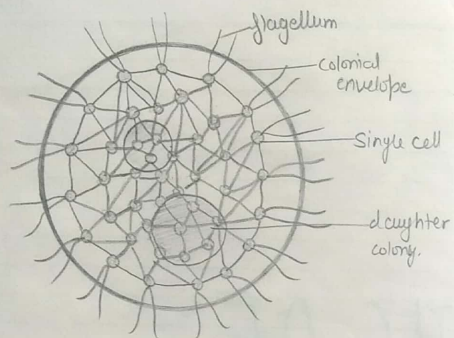 flagellum
colonial
envelope
Single cell
daughter
colony.